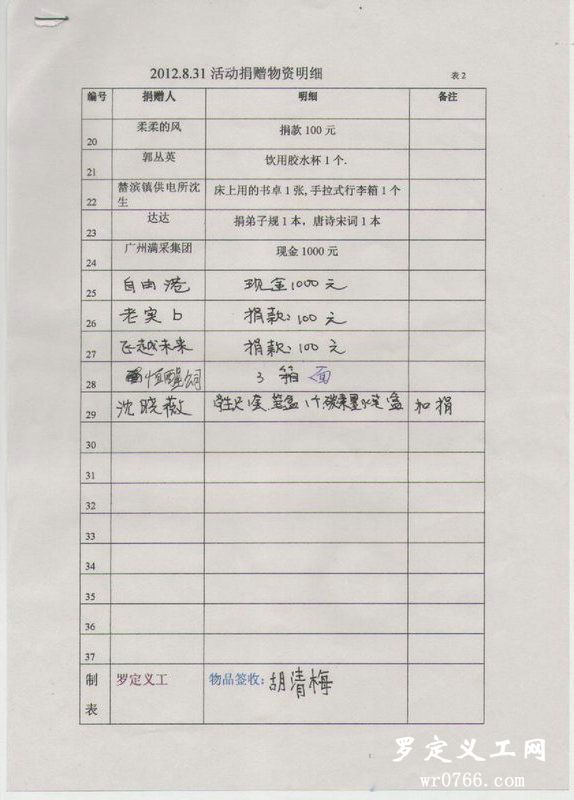 2012.8.31 活动捐赠物资明细 表 2
编号 捐赠人 明细 备注
20 柔柔的风 捐款 100 元
21 郭丛英 饮用胶水杯 1 个.
22 榃滨镇供电所沈生 床上用的书卓 1 张, 手拉式行李箱 1 个
23 达达 捐弟子规 1 本，唐诗宋词 1 本
24 广州满采集团 现金 1000 元
25 自由港 现金1000元
26 老实b 捐款:100元
27 飞越未来 捐款:100元
28 3 箱 面
29 沈晓薇 笔盒1个 和捐
30
31
32
33
34
35
36
37
制表 罗定义工 物品签收: 胡清梅
罗定义工网
wr0766.com